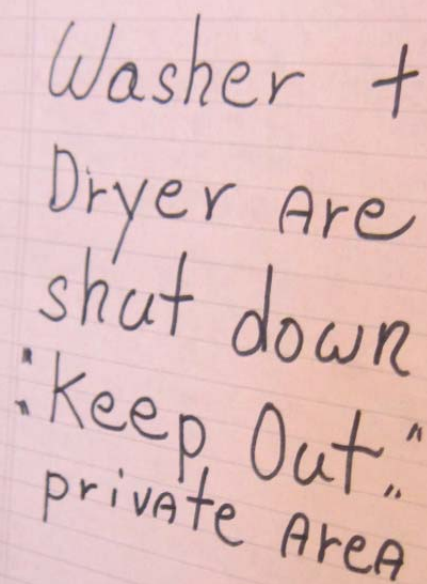 Washer +
Dryer Are
shut down
"Keep Out."
private Area